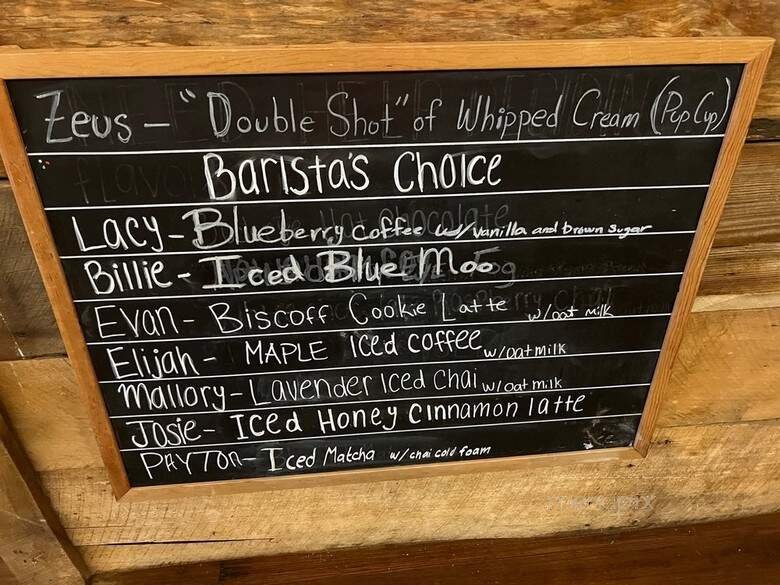 Zeus - "Double Shot" of Whipped Cream (Pup Cup)
Barista's Choice
Lacy - Blueberry Coffee w/ vanilla and brown sugar
Billie - Iced Blue Moo
Evan - Biscoff Cookie Latte w/oat milk
Elijah - MAPLE Iced coffee w/oat milk
Mallory - Lavender Iced Chai w/oat milk
Josie - Iced Honey Cinnamon latte
PAYTON - Iced Matcha w/chai cold foam